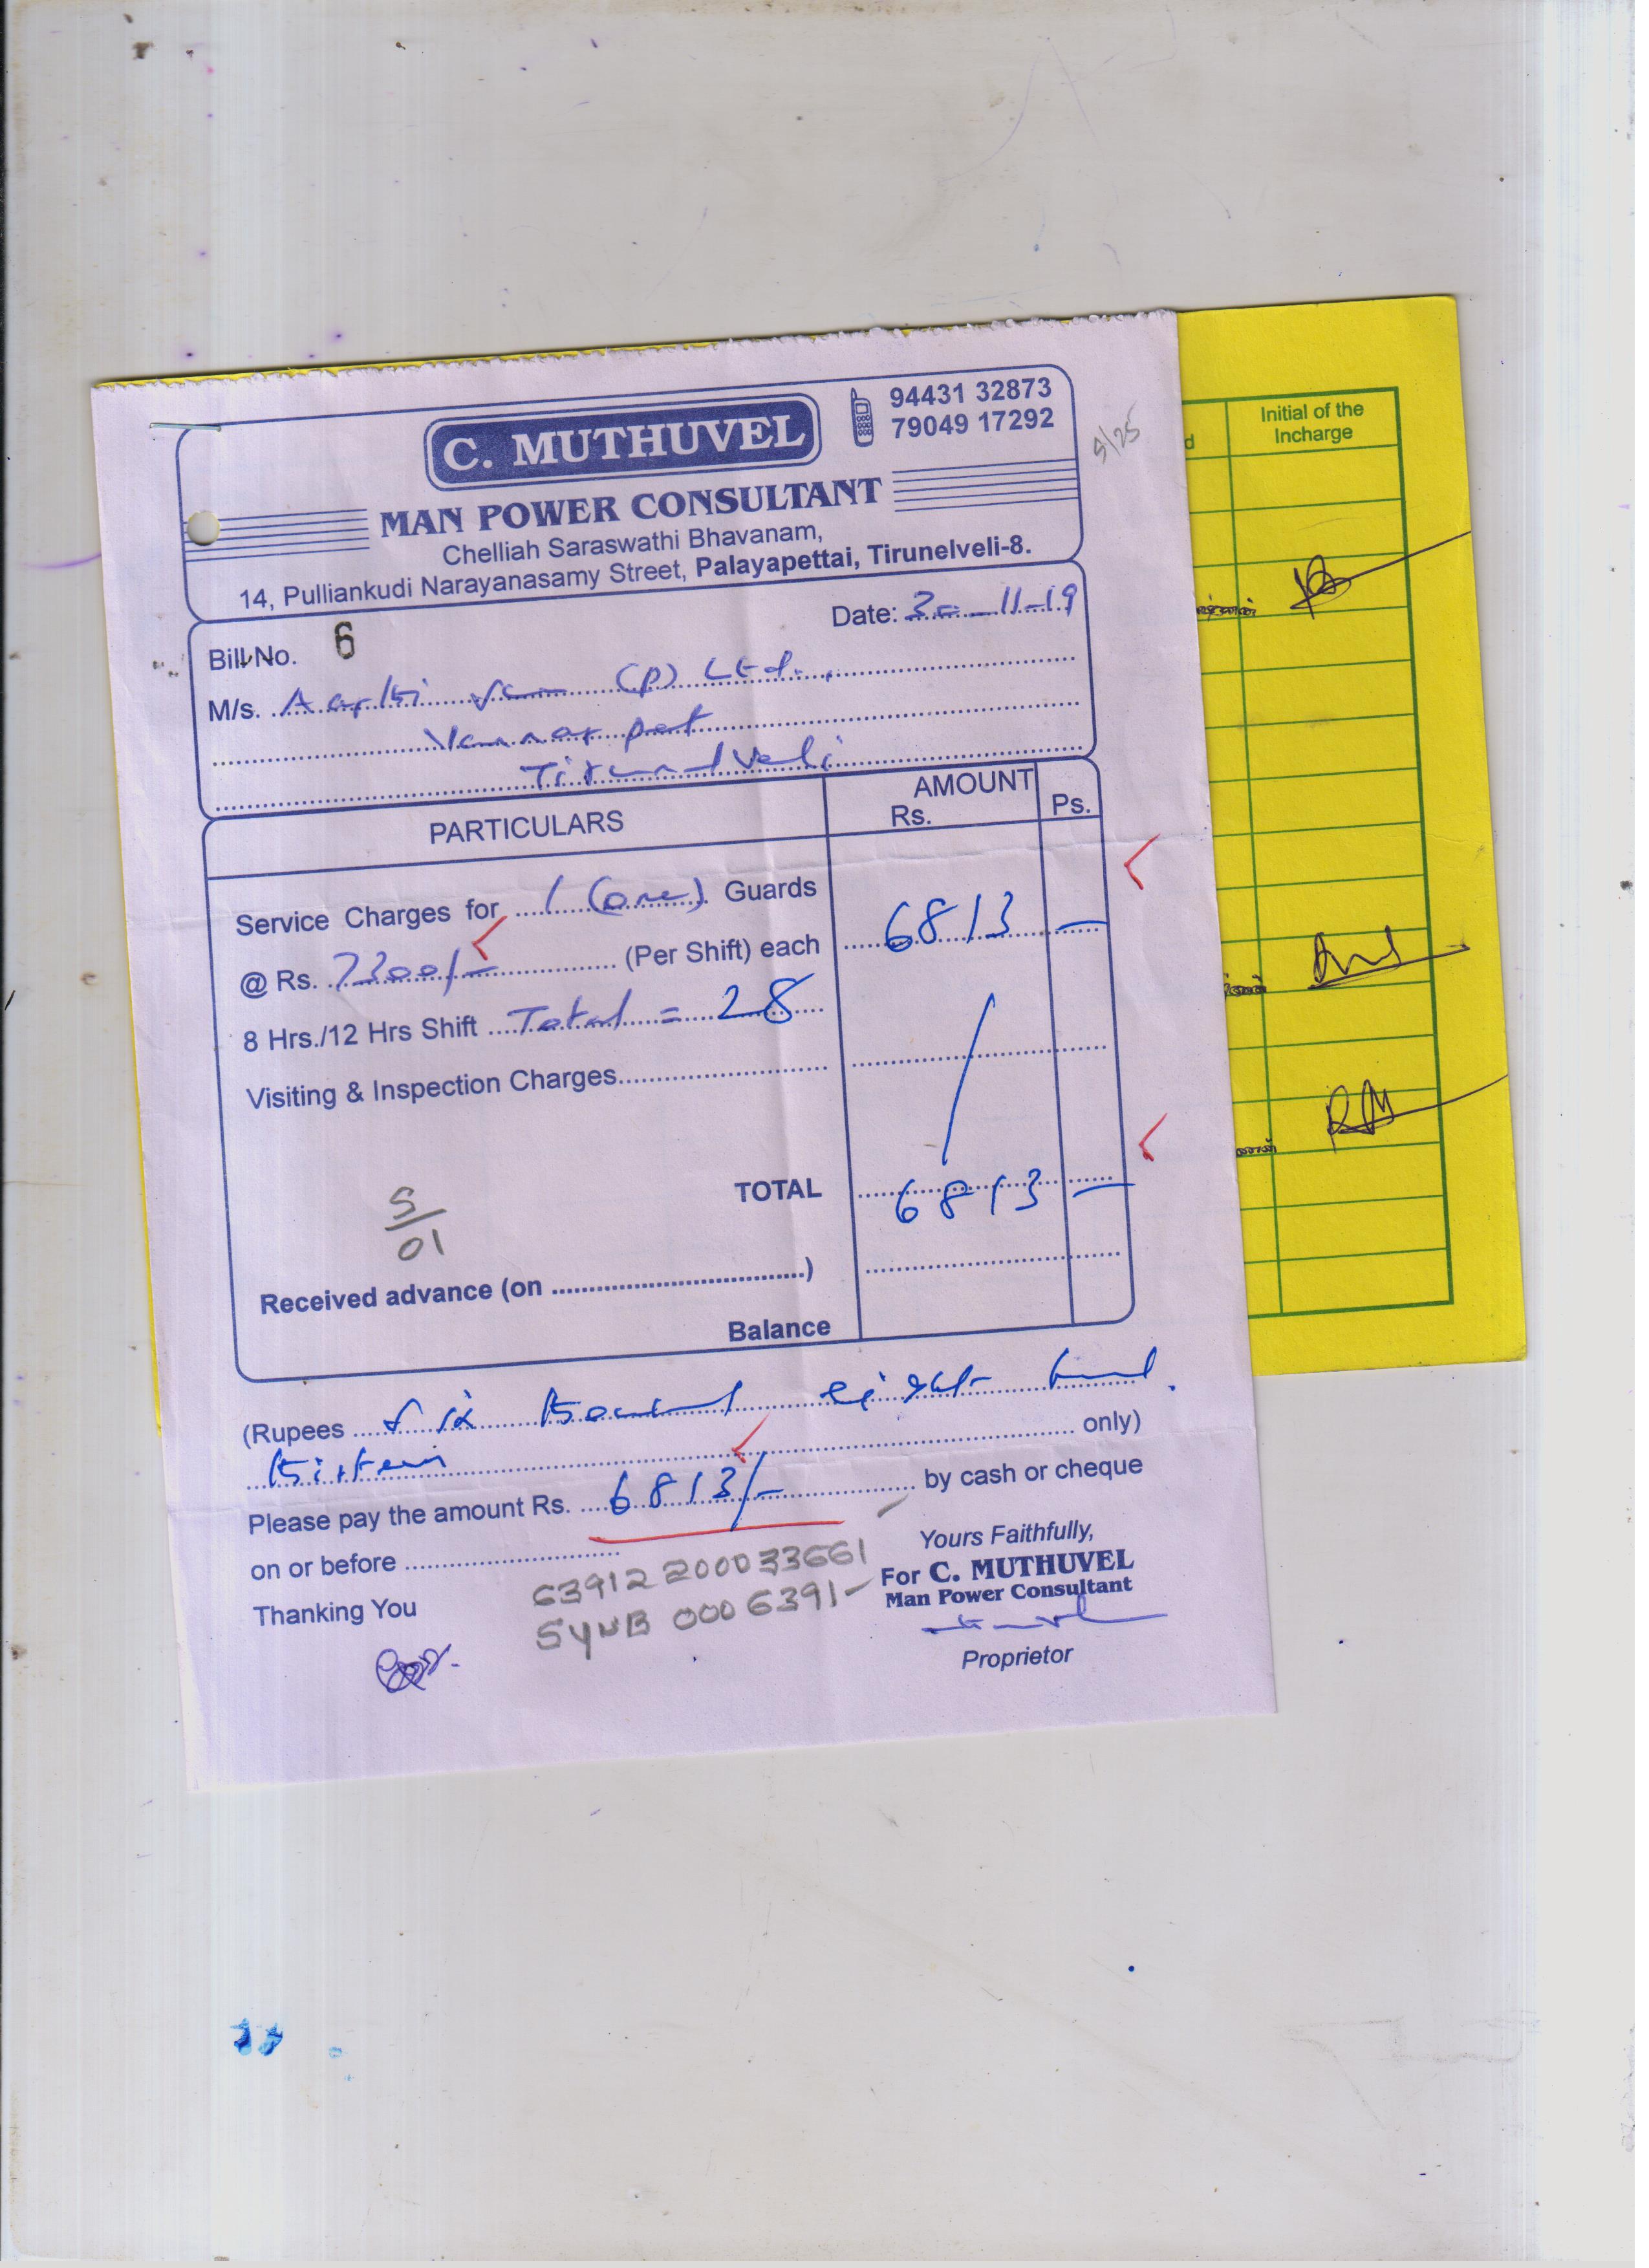 C. MUTHUVEL
94431 32873
79049 17292
5/25
MAN POWER CONSULTANT
Chelliah Saraswathi Bhavanam,
14, Pulliankudi Narayanasamy Street, Palayapettai, Tirunelveli-8.
Bill No. 6
Date: 30-11-19
M/s. (P) Ltd.,
Vannarpet
Tirunelveli
PARTICULARS AMOUNT
Rs. Ps.
Service Charges for 1 (one) Guards
@ Rs. 7300/- (Per Shift) each 6813 —
8 Hrs./12 Hrs Shift Total = 28
Visiting & Inspection Charges
TOTAL 6813 —
5/01
Received advance (on )
Balance
(Rupees Six thousand eight hund
thirteen only)
Please pay the amount Rs. 6813/- by cash or cheque
on or before
Thanking You
63912200033661
SYNB 0006391
Yours Faithfully,
For C. MUTHUVEL
Man Power Consultant
Proprietor
d
Initial of the
Incharge